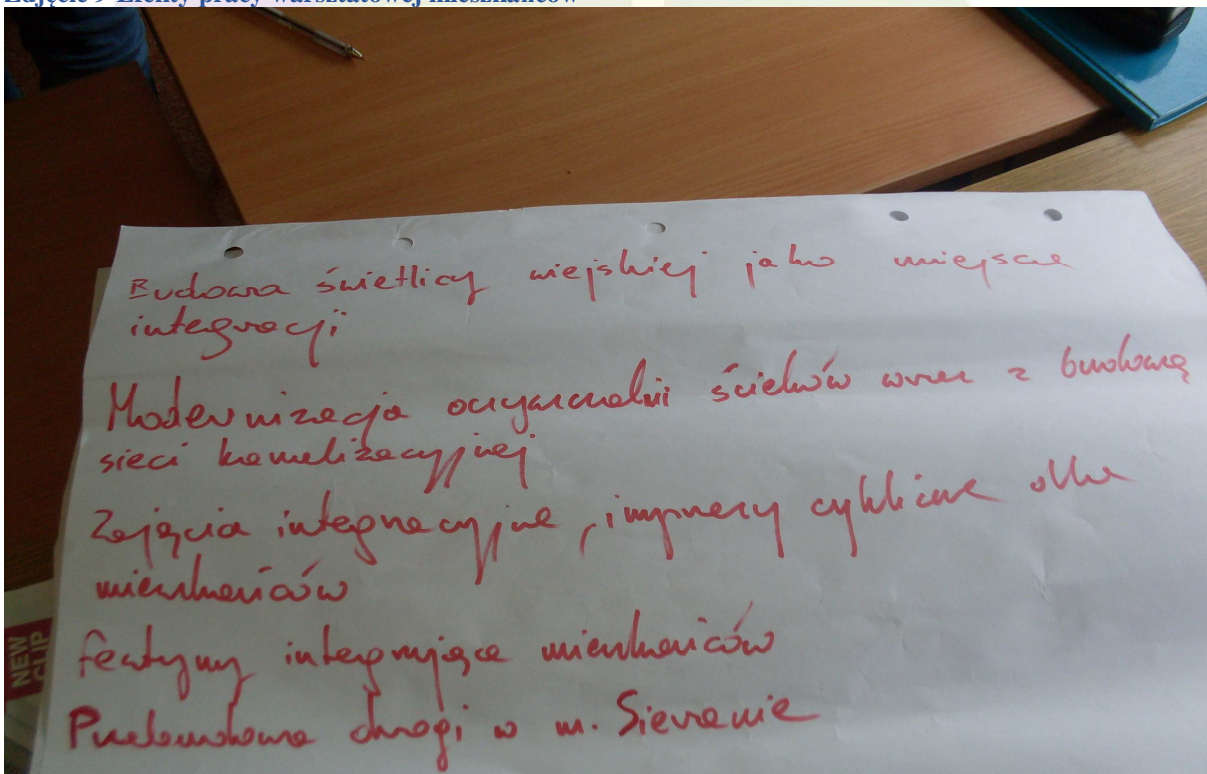 Zdjęcie 9 Efekty pracy warsztatowej mieszkańców
Budowa świetlicy wiejskiej jako miejsce
integracji
Modernizacja oczyszczalni ścieków wraz z budową
sieci kanalizacyjnej
Zajęcia integracyjne, imprezy cykliczne dla
mieszkańców
festyny integrujące mieszkańców
Przebudowa drogi w m.
NEW
CLIP